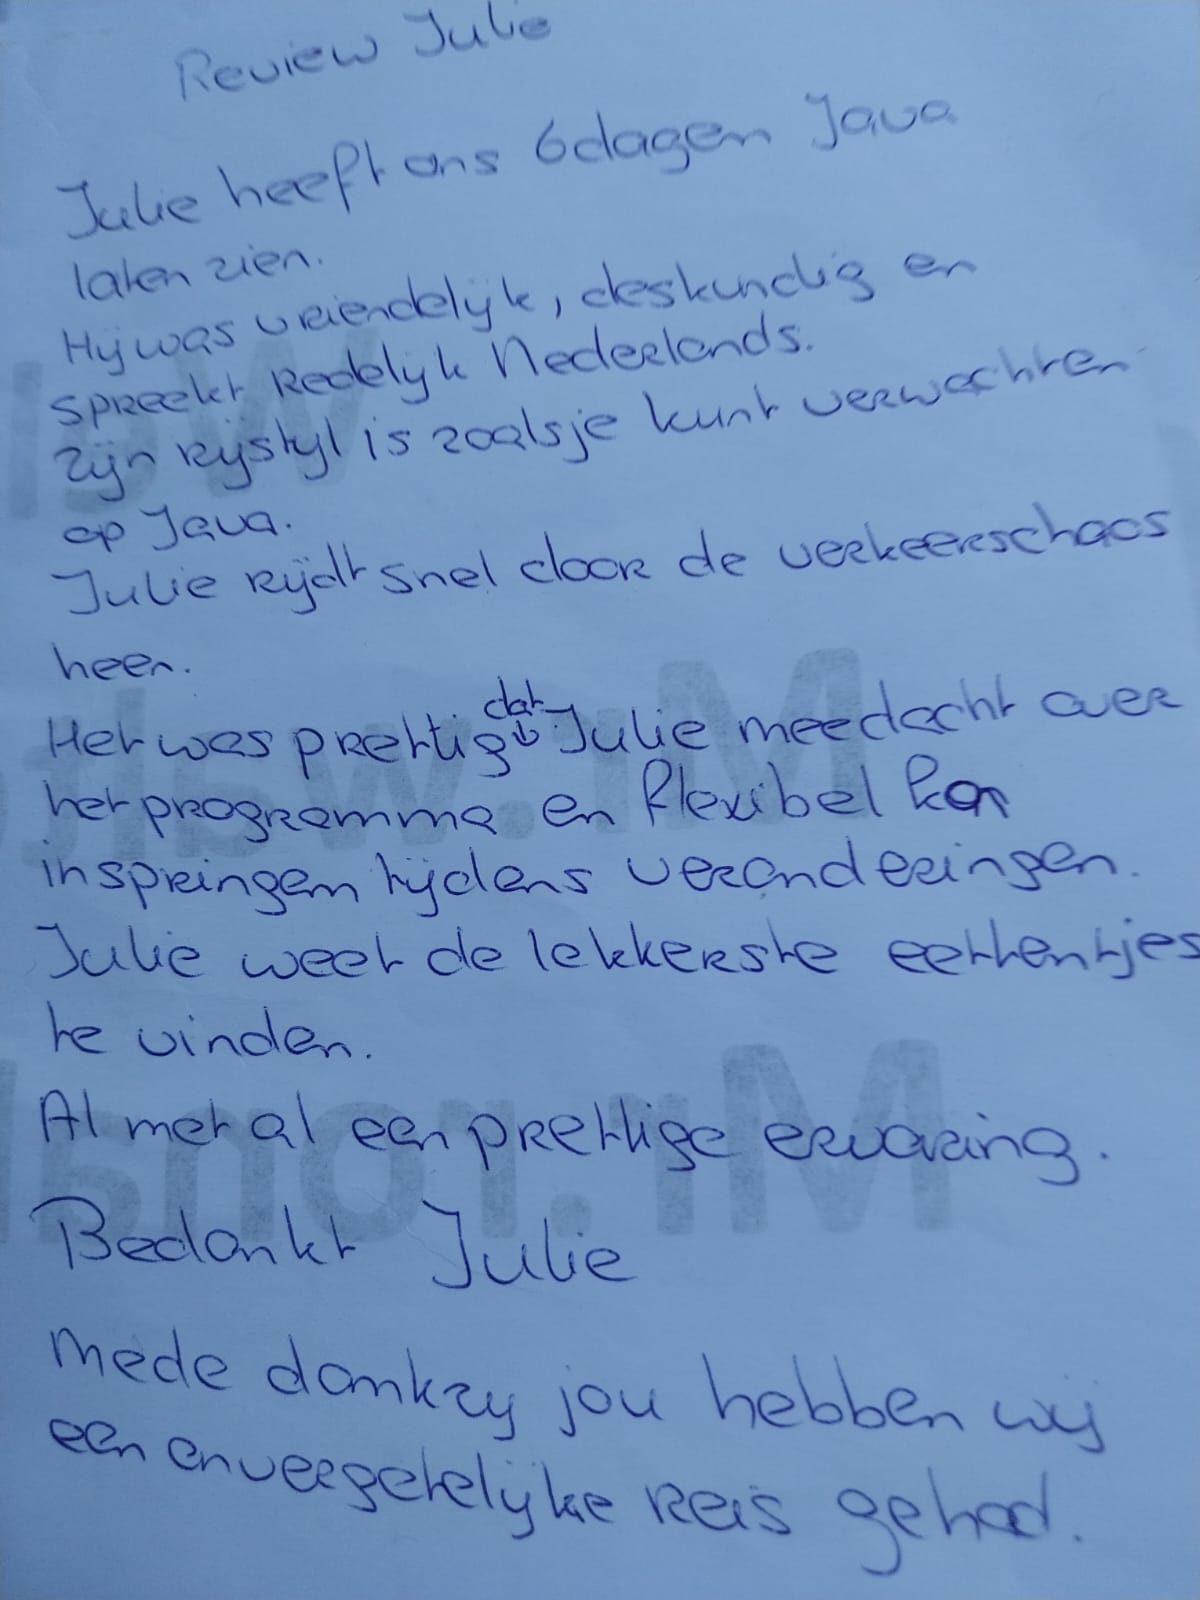 Review Julie
Julie heeft ons 6 dagen Java
laten zien.
Hij was vriendelijk, deskundig en
spreekt redelijk Nederlands.
Zijn rijstijl is zoals je kunt verwachten
op Java.
Julie rijdt snel door de verkeerschaos
heen.
Het was prettig dat Julie meedacht over
het programma en flexibel kon
inspringen tijdens veranderingen.
Julie weet de lekkerste eettentjes
te vinden.
Al met al een prettige ervaring.
Bedankt Julie
Mede dankzij jou hebben wij
een onvergetelijke reis gehad.